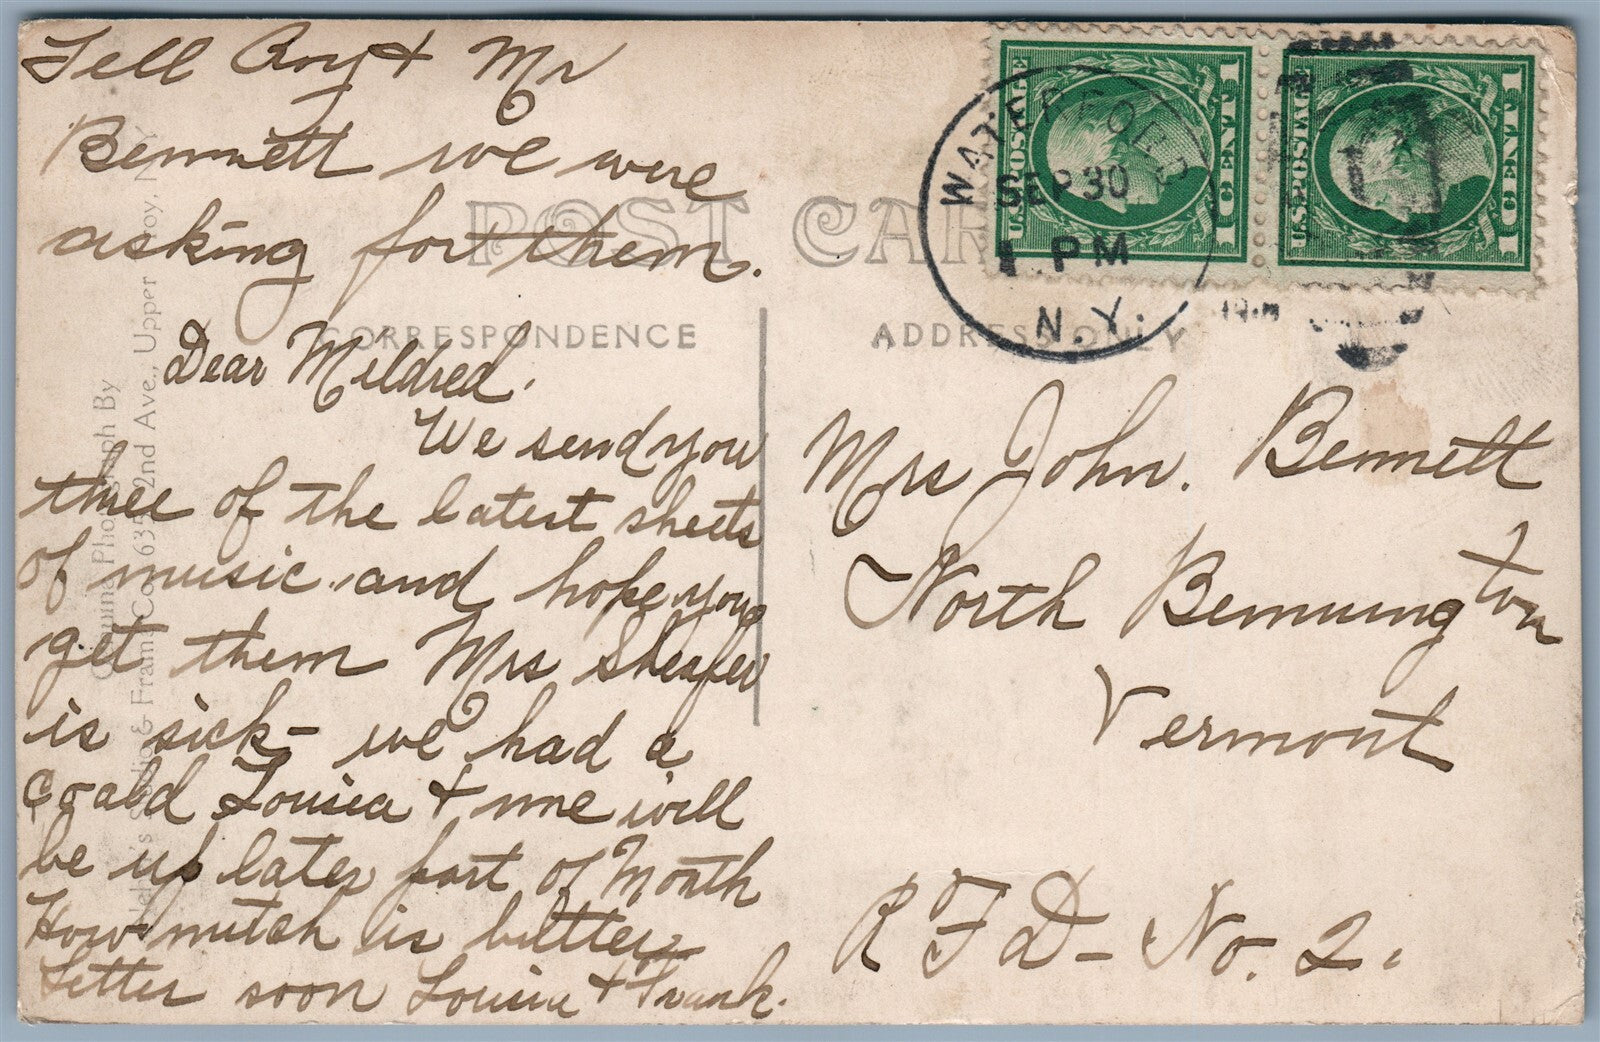 Tell Roy & Mr
Bennett we were
asking for them.
Dear Mildred,
We send you
three of the latest sheets
of music and hope you
get them Mrs
is sick - we had a
coald Louisa & me will
be up later part of Month
How mutch is butter
Letter soon Louisa & Frank.
POST CAR
CORRESPONDENCE
ADDRESS ONLY
U.S. POSTAGE
1 CENT 1
U.S. POSTAGE
1 CENT 1
WATERFORD
SEP 30
1 PM
N.Y.
Mrs John. Bennett
North Bennington
Vermont
R F D - No. 2.
Genuine Photograph By
Studio & Frame Co., 635 2nd Ave., Upper Troy, N.Y.